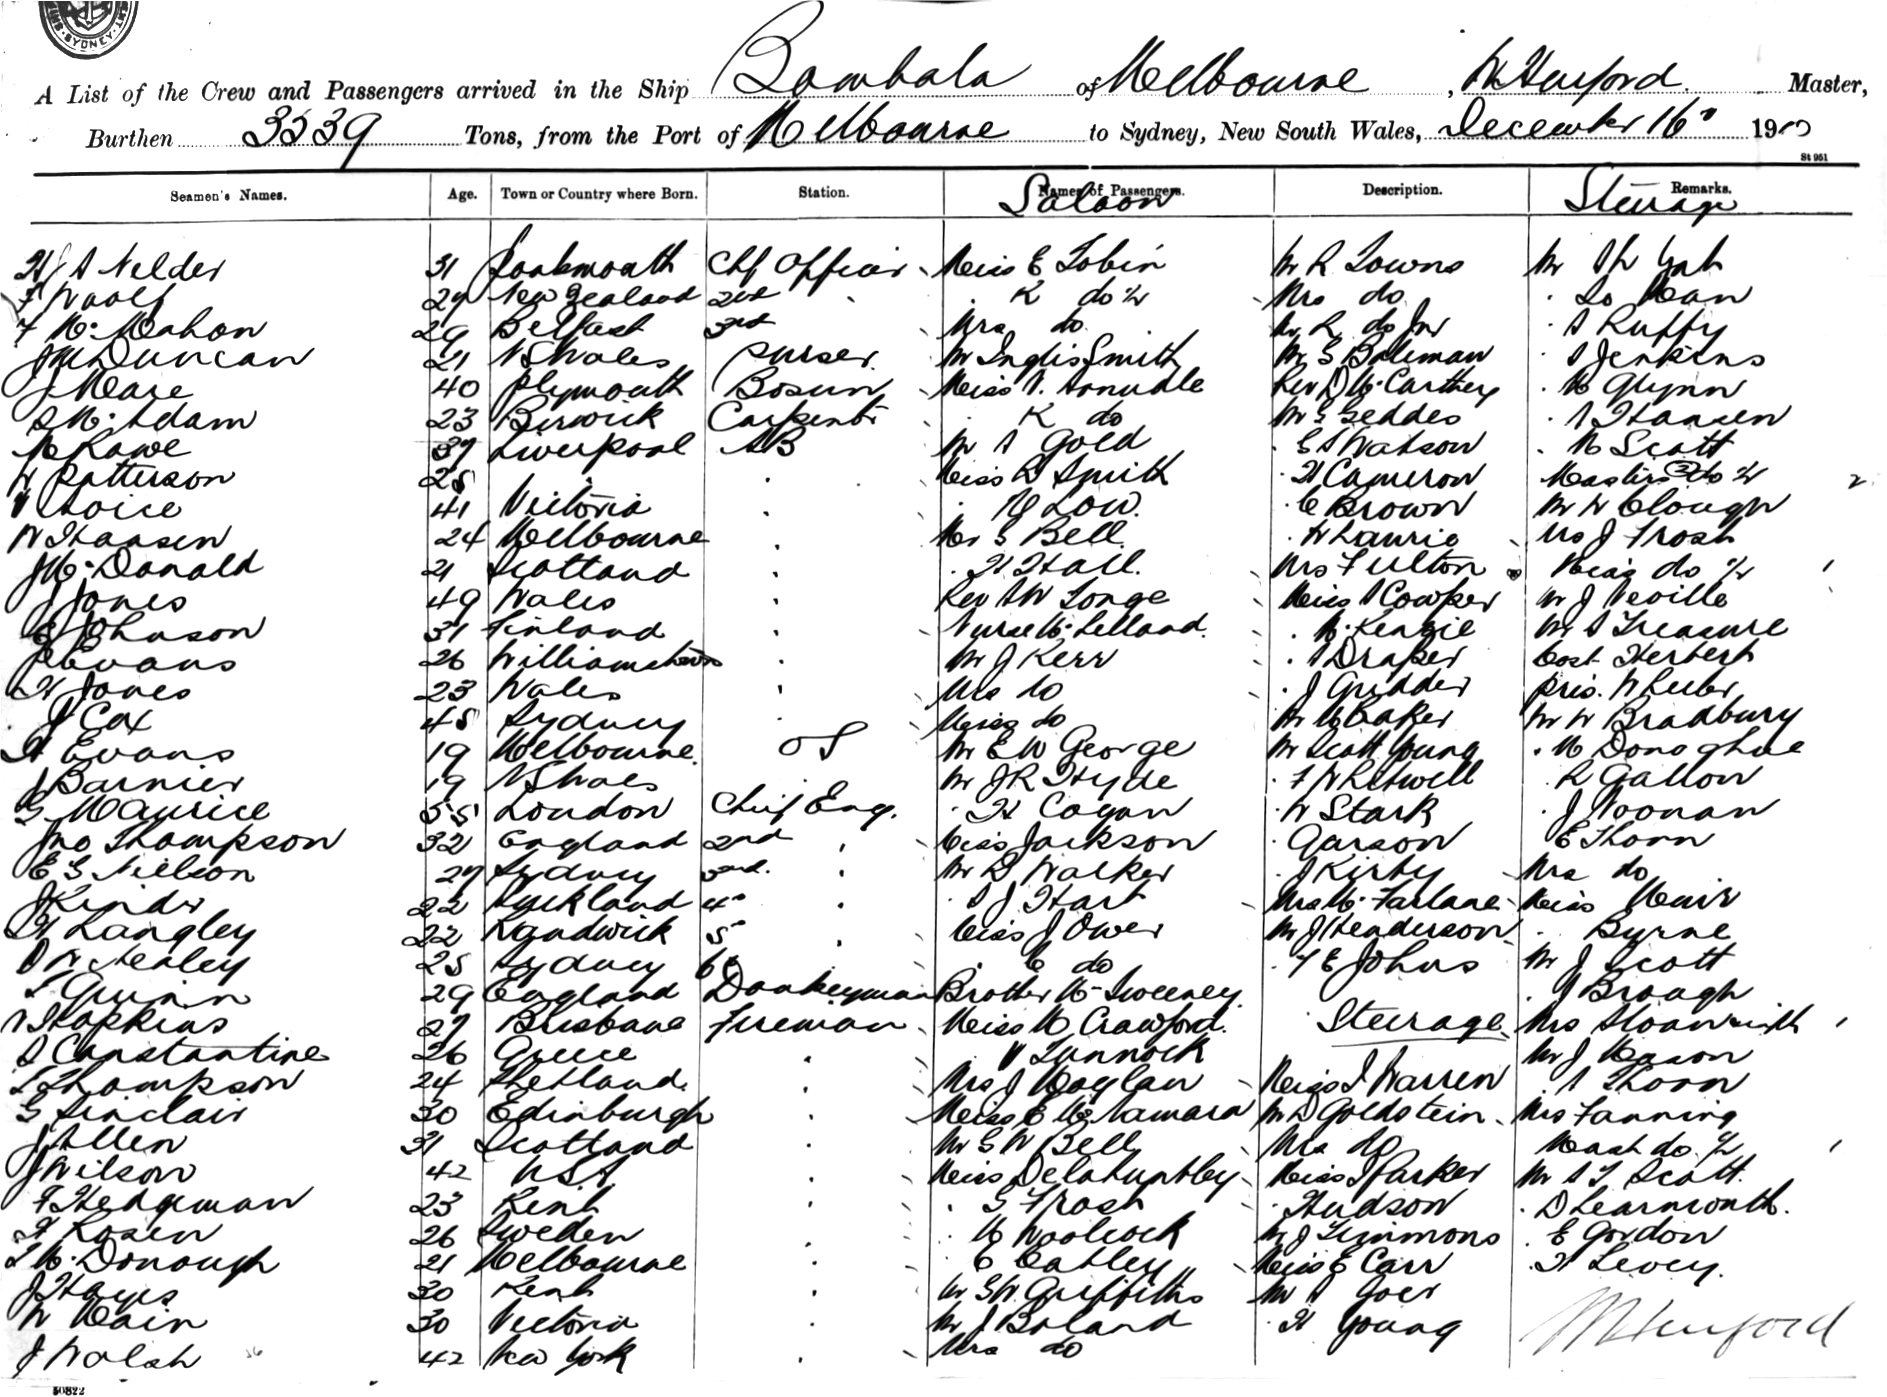 SYDNEY
A List of the Crew and Passengers arrived in the Ship Bombala of Melbourne, Master,
Burthen 3539 Tons, from the Port of Melbourne to Sydney, New South Wales, December 16 19
St 951
Seamen's Names. Age. Town or Country where Born. Station. Names of Passengers. Description. Remarks.
Saloon Steerage
Nelder 31 Chf Officer Miss E Tobin Mr R Towns Mr
Woolf 29 New Zealand 2nd K do Mrs do
F McMahon 29 Belfast 3rd Mrs do Mr R do Jnr Ruffy
J M Duncan 21 N S Wales Purser Mr Inglis Smith Mr G Bateman Jenkins
J Meare 40 Plymouth Bosun Miss Rev McCarthy M Glynn
McAdam 23 Berwick Carpenter K do Mr G Geddes Hansen
Rowe 37 Liverpool AB Mr A Gold Watson M Scott
W Patterson 25 Miss Smith H Cameron Masters (2) do
41 Victoria Low. C Brown Mr W Clough
Hansen 24 Melbourne Mr G Bell W Laurie Mrs J Frost
J McDonald 21 Scotland H Hall. Mrs Fulton Miss do
J Jones 49 Wales Rev Longe Miss Cowper Mr J Neville
Johnson 31 Finland Nurse McLelland. McKenzie Mr Treasure
J Evans 26 Williamstown Mr J Kerr Draper Const Herbert
H Jones 23 Wales Mrs do J Gridder Pris. Wheeler
J Cox 45 Sydney Miss do Mr Baker Mr W Bradbury
H Evans 19 Melbourne. OS Mr E W George Mr Scott Young M Donoghue
J Barnier 19 N S Wales Mr J R Hyde F Whitwell R Gallon
G Maurice 55 London Chief Eng. H Cogan W Stark J Noonan
Jno Thompson 32 England 2nd Miss Jackson Garson E Thorn
E G Neilson 29 Sydney 3rd. Mr D Walker J Kirby Mrs do
J Kinder 22 Auckland 4 J Hart Mrs McFarlane Miss Muir
H Langley 22 Randwick 5 Miss J Ower Mr J Henderson Byrne
Healey 25 Sydney 6 do F E Johns Mr J Scott
Quinn 29 England Donkeyman Brother McSweeney J Brough
Hopkins 27 Brisbane Fireman Miss M Crawford. Steerage Mrs
Constantine 26 Greece Tunnock Mr J Mason
Thompson 24 Shetland. Mrs J Miss I Warren Thorn
G Sinclair 30 Edinburgh Miss E McNamara Mr D Goldstein Mrs Fanning
J Allen 31 Scotland Mr G W Bell Mrs do Mast do
J Wilson 42 USA Miss Delahuntley Miss Parker Mr Scott.
F Hedgman 23 Kent G Frost Hudson D Learmonth.
H Rosen 26 Sweden M Woolcock Mr J Timmons E Gordon
McDonough 21 Melbourne E Oatley Miss E Carr H Levey.
J Hayes 30 Kent Mr G W Griffiths Mr Goer
W Main 30 Victoria Mr J Boland H Young
J Walsh 42 New York Mrs do
50822